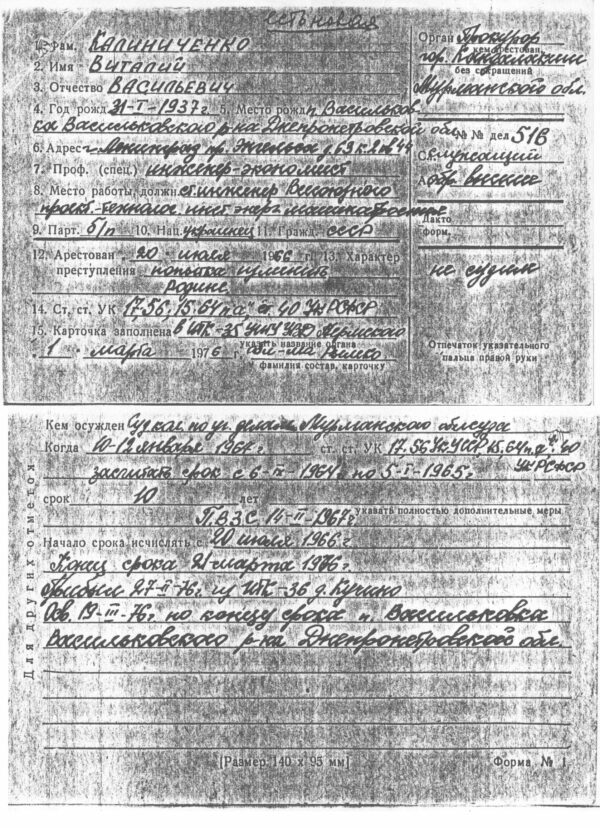 есть новая
1. Фам. КАЛИНИЧЕНКО
2. Имя ВИТАЛИЙ
3. Отчество ВАСИЛЬЕВИЧ
4. Год рожд. 31-I-1937 г. 5. Место рожд. п. Васильков
ка Васильковского р-на Днепропетровской обл.
6. Адрес г. Ленинград пр. Энгельса д. 63 к. 2 кв 44
7. Проф. (спец.) инженер-экономист
8. Место работы, должн. ст. инженер Всесоюзного
9. Парт. б/п 10. Нац. украинец 11. Гражд. СССР
12. Арестован 20 июля 1966 г. 13. Характер
преступления попытка изменить
Родине
14. Ст. ст. УК 17,56, 15.64 п "а", ст 40 УК РСФСР
15. Карточка заполнена в ИТК-35 Пермского
указать название органа
1 марта 1976 г.
и фамилия состав. карточку
Орган Прокурор
кем арестован
гор. Кандалакши
без сокращений
Мурманской обл.
№ № дел 51В
Служащий
обр. высшее
Дакто
форм.
не судим
Отпечаток указательного
пальца правой руки
Для других отметок
Кем осужден Суд кол. по уг. делам Мурманского облсуда
Когда 10-12 января 1967 г. ст. ст. УК 17,56 УК УССР, 15.64 п "а", 40
УК РСФСР
засчитать срок с 6-III-1964 г. по 5-I-1965 г.
срок 10 лет
указать полностью дополнительные меры
П.В.З.С. 14-II-1967 г.
Начало срока исчислять с 20 июля 1966 г.
Конец срока 21 марта 1976 г.
Прибыл 27-II-76 г. из ИТК-36 д. Кучино
Осв. 19-III-76 г. по концу срока п. Васильковка
Васильковского р-на Днепропетровской обл.
[Размер 140 x 95 мм] Форма № 1